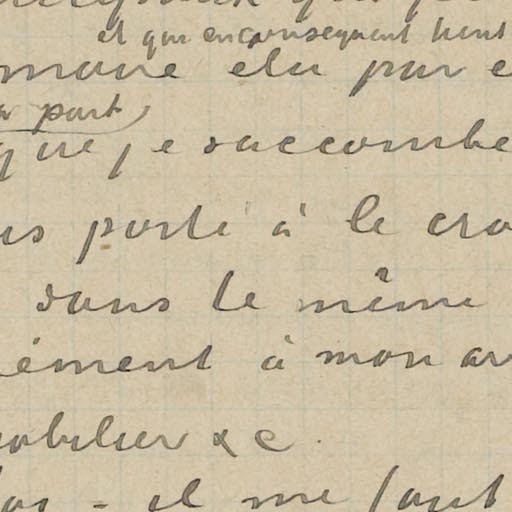 et que en conséquent tient
manie élu par
part
que je succombe
us porté à le cro
dans le même
ément à mon ar
mobilier & c.
- il me faut